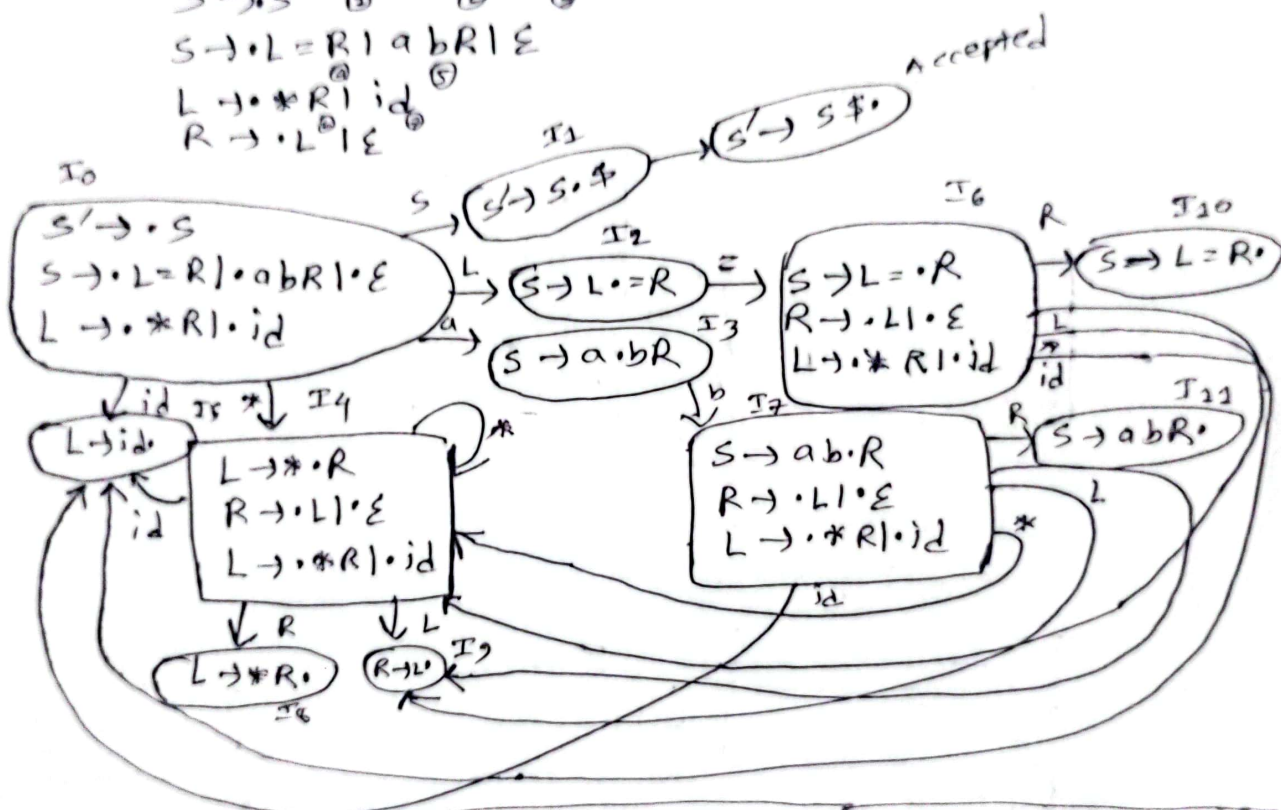 S → •L = R | a bR | ε
④ ⑤
L → •* R | id
R → •L | ε
Accepted
I0
S' → •S
S → •L=R | •abR | •ε
L → •*R | •id
S
I1
S' → S•$
S' → S$•
L
I2
S → L•=R
=
a
I3
S → a•bR
b
I6
S → L = •R
R → •L | •ε
L → •* R | •id
R
I10
S → L = R•
L
*
id
id
I5
L → id•
*
I4
L → *•R
R → •L | •ε
L → •*R | •id
*
id
I7
S → ab•R
R → •L | •ε
L → •*R | •id
R
I11
S → abR•
L
*
id
R
L → *R•
I8
L
I9
R → L•